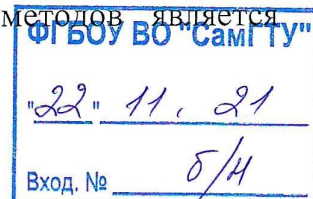 методов является
ФГБОУ ВО "СамГТУ"
"22" 11. 21
Вход. № б/н